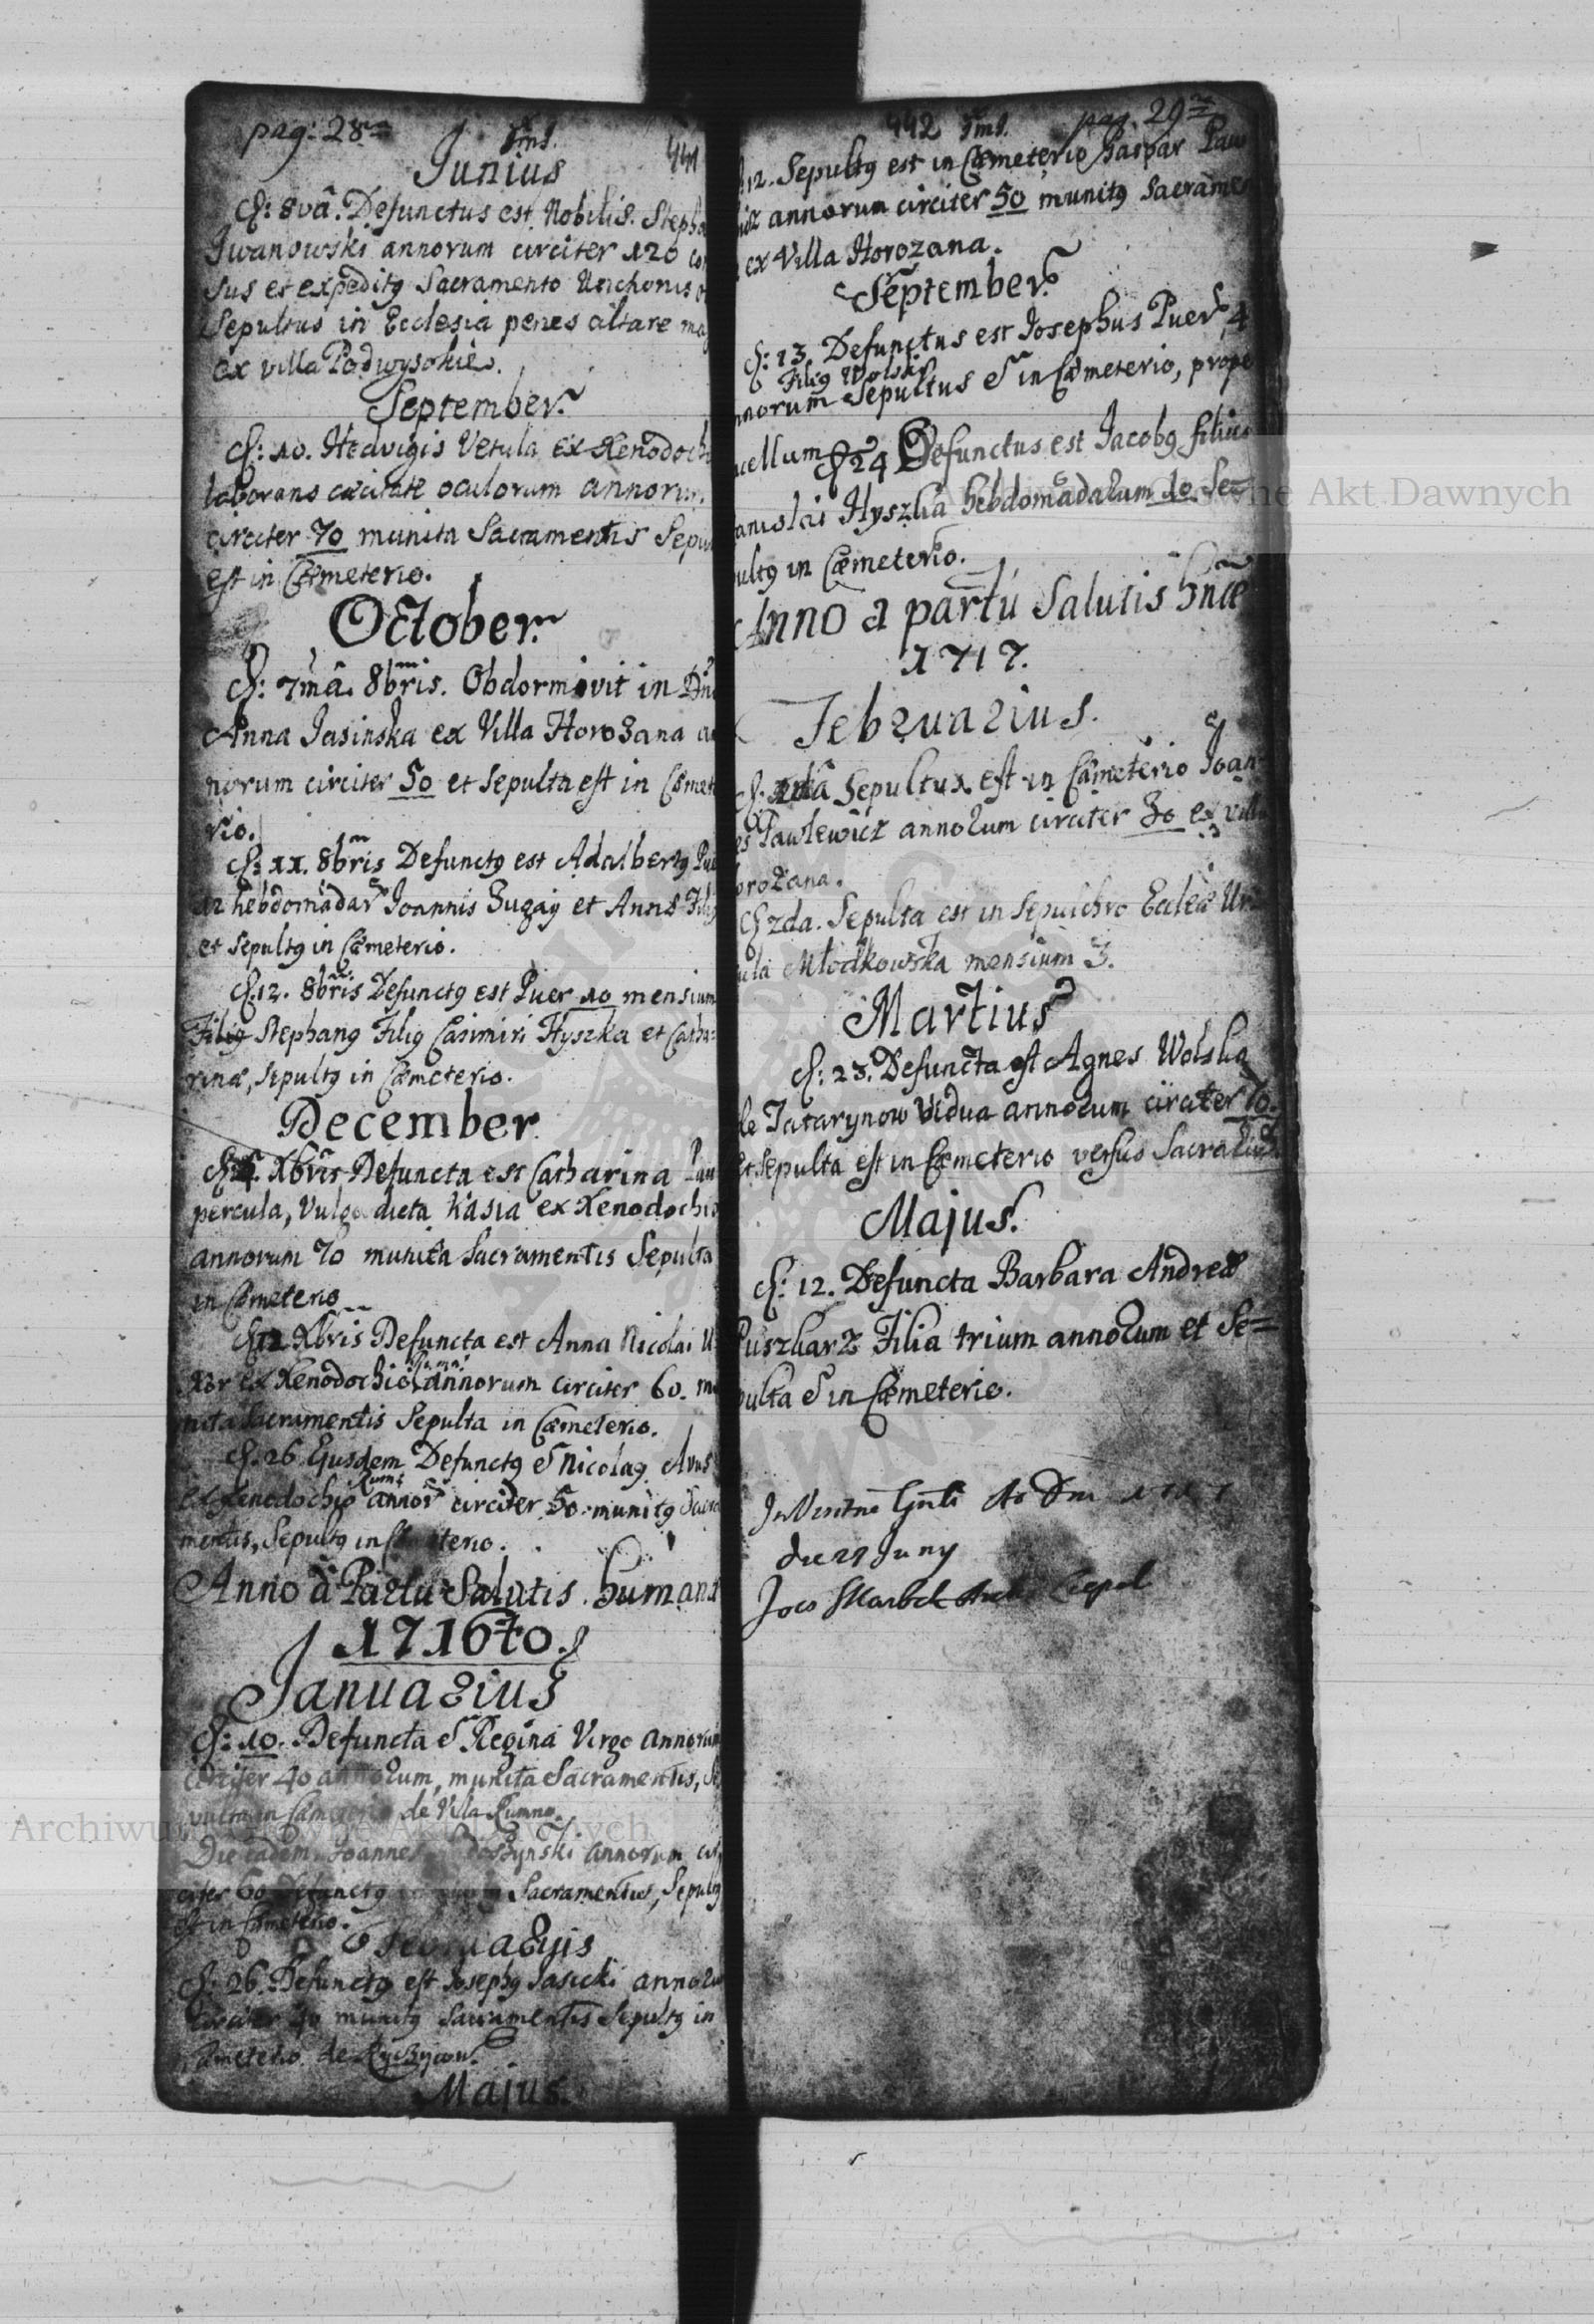 pag: 28
441
Junius
D: 8vâ. Defunctus est Nobilis. Stepha
Jwanowski annorum circiter 120 con
sus et expeditq Sacramento Unctionis
Sepultus in Ecclesia penes altare ma
ex villa Podwysokie.
September.
D: 10. Hedvigis Vetula ex Xenodoch
laborans cæcitate oculorum annorum
circiter 70 munita Sacramentis Sepul
est in Cæmeterio.
October.
D: 7mâ. 8bris. Obdormivit in Dno
Anna Jasinska ex Villa Horozana an
norum circiter 50 et Sepulta est in Cæmete
rio.
D: 11. 8bris Defunctq est Adalbertq Pue
12 hebdomadar Joannis Zugay et Annæ Filiq
et Sepultq in Cæmeterio.
D. 12. 8bris Defunctq est Puer 10 mensium
Filiq Stephanq Filiq Casimiri Hyszka et Catha=
rinæ, Sepultq in Cæmeterio.
December
Xbris Defuncta est Catharina Pau
percula, Vulgo dicta Kasia ex Xenodochio
annorum 70 munita Sacramentis Sepulta
in Cæmeterio
D 12 Xbris Defuncta est Anna Nicolai U=
xor ex Xenodochio annorum circiter 60. mu
nita Sacramentis Sepulta in Cæmeterio.
D. 26 Ejusdem Defunctq e Nicolaq Avus
ex Xenodochio annor circiter 50. munitq Sacra
mentis, Sepultq in terio.
Anno à Partu Salutis humanæ
1716to.
Januarius
D: 10. Defuncta e Regina Virgo annorum
circiter 40 annorum, munita Sacramentis, Se
in de Villa Rumno.
Die eadem Joannes annorum cir
citer 60 Defunctq Sacramentis, Sepultq
est in Cæmeterio.
D: 26. Defunctq est Josephq Jasicki annoru
circiter 40 munitq Sacramentis Sepultq in
Cæmeterio de
Majus.
442 pag. 29
D 12. Sepultq est in Cæmeterio Gaspar Paw
icz annorum circiter 50 munitq Sacramen
ex Villa Horozana.
September.
D: 13. Defunctus est Josephus Puer 4
Filiq Wolski
nnorum Sepultus e in Cæmeterio, prope
uellum D 24 Defunctus est Jacobq filius
anislai Hyszka hebdomadarum 10. Se=
ultq in Cæmeterio.
Anno a partu Salutis hnæ
1717.
Februarius.
D. Sepultus est in Cæmeterio Joan=
es Pawlewicz annorum circiter 30 ex villa
orozana.
D 2da. Sepulta est in Sepulchro Eccleæ Ur
ula Młodkowska mensium 3.
Martius
D: 23. Defuncta est Agnes Wolska
de Tatarynow Vidua annorum circiter 70.
et Sepulta est in Cæmeterio versus Sacrarium
Majus.
D: 12. Defuncta Barbara Andreæ
Puszkarz Filia trium annorum et Se=
pulta e in Cæmeterio.